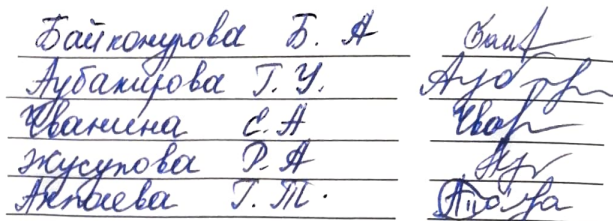 Байконурова Б. А
Аубакирова Г. У.
Чванина С. А
Жусупова Р. А
Акпаева Г. Т.